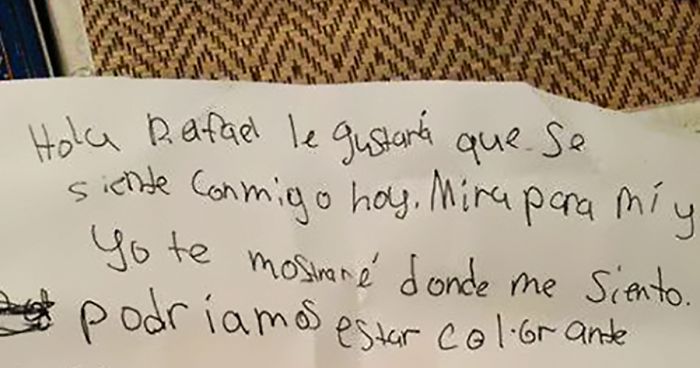 Hola Rafael le gustará que se
siente conmigo hoy. Mira para mí y
yo te mostraré donde me siento.
podríamos estar colorante